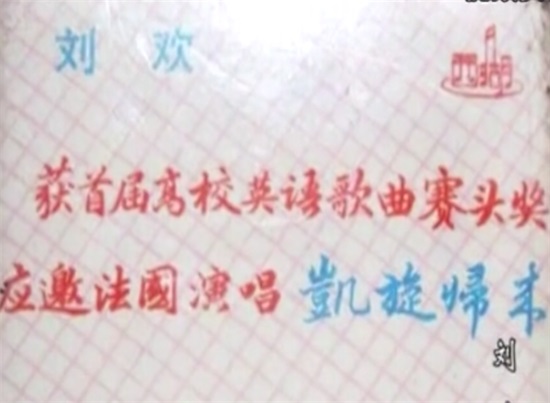 刘 欢
获首届高校英语歌曲赛头奖
应邀法國演唱 凱旋歸来
刘